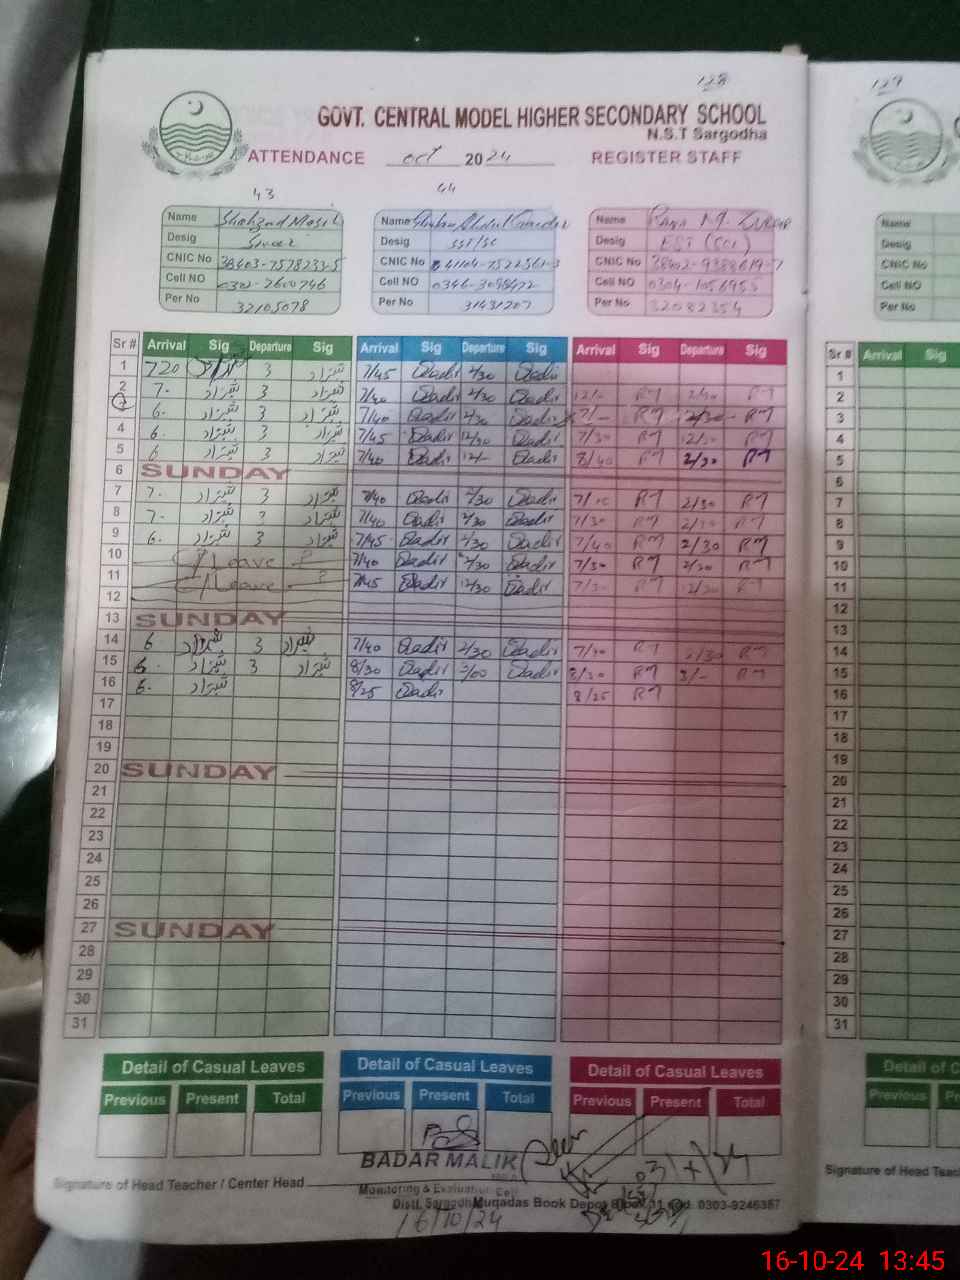 128
129
GOVT. CENTRAL MODEL HIGHER SECONDARY SCHOOL
N.S.T Sargodha
ATTENDANCE Oct 2024 REGISTER STAFF
43 44
Name Shahzad Masih
Desig
CNIC No 38403-7578233-5
Cell NO 0302-2600746
Per No 32105078
Name
Desig SST/SC
CNIC No 41104-7522561-3
Cell NO 0346-3098472
Per No 31431207
Name Rana M.
Desig EST (SCI)
CNIC No 38402-9388619-7
Cell NO 0304-1056955
Per No 32082354
Name
Desig
CNIC No
Cell NO
Per No
Sr # Arrival Sig Departure Sig Arrival Sig Departure Sig Arrival Sig Departure Sig
1 720 3 شہزاد 7/45 Qadir 2/30 Qadir
2 7. شہزاد 3 شہزاد 7/40 Qadir 2/30 Qadir 12/- RM 2/30 RM
3 6. شہزاد 3 شہزاد 7/40 Qadir 2/30 Qadir 7/- RM 2/30 RM
4 6. شہزاد 3 شہزاد 7/45 Qadir 12/30 Qadir 7/30 RM 12/30 RM
5 6 شہزاد 3 شہزاد 7/40 Qadir 12/- Qadir 8/40 RM 2/30 RM
6 SUNDAY
7 7. شہزاد 3 شہزاد 7/40 Qadir 2/30 Qadir RM 2/30 RM
8 7. شہزاد 3 شہزاد 7/40 Qadir 2/30 Qadir 7/30 RM 2/30 RM
9 6. شہزاد 3 شہزاد 7/45 Qadir 2/30 Qadir 7/40 RM 2/30 RM
10 C/Leave 7/40 Qadir 2/30 Qadir 7/30 RM 2/30 RM
11 C/Leave 7/45 Qadir 12/30 Qadir 7/30 RM 12/30 RM
12
13 SUNDAY
14 6 شہزاد 3 شہزاد 7/40 Qadir 2/30 Qadir 7/30 RM 2/30 RM
15 6. شہزاد 3 شہزاد 8/30 Qadir 3/00 Qadir 8/30 RM 3/- RM
16 6. شہزاد 8/25 Qadir 8/25 RM
17
18
19
20 SUNDAY
21
22
23
24
25
26
27 SUNDAY
28
29
30
31
Sr # Arrival Sig
1
2
3
4
5
6
7
8
9
10
11
12
13
14
15
16
17
18
19
20
21
22
23
24
25
26
27
28
29
30
31
Detail of Casual Leaves
Previous Present Total
Detail of Casual Leaves
Previous Present Total
Detail of Casual Leaves
Previous Present Total
Detail of Ca
Previous
BADAR MALIK
Signature of Head Teacher / Center Head
Monitoring & Evaluation Cell
Distt. Sargodha
Muqadas Book Depot 0303-9246387
16/10/24
Signature of Head Teac
16-10-24 13:45